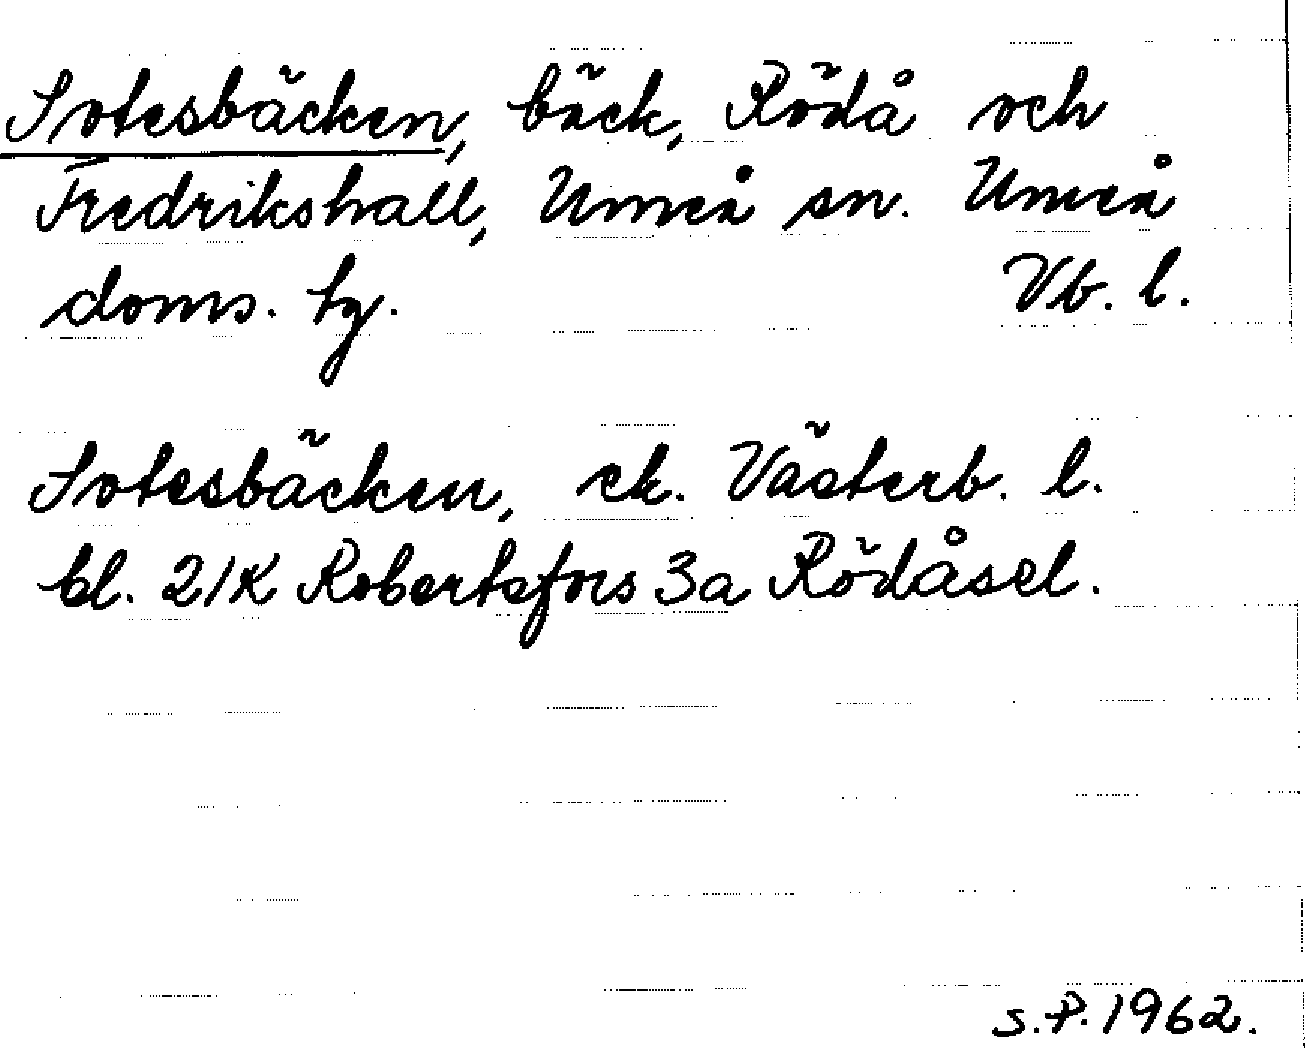 Sotesbäcken, bäck, Rödå och
Fredrikshall, Umeå sn. Umeå
doms. tg. Vb. l.
Sotesbäcken, ek. Västerb. l.
bl. 21K Robertsfors 3a Rödåsel.
S.P. 1962.